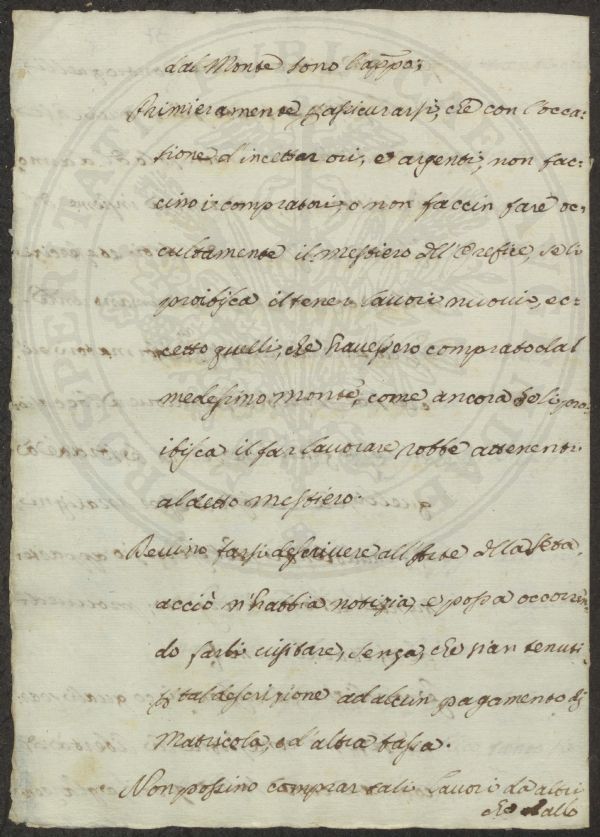 dal Monte sono l'app.o:
Primieramente p assicurarsi, che con l'occa-
sione d'incettar ori, e argenti, non fac-
cino i compratori, o non faccin fare oc-
cultamente il mestiero dell'Orefice, se li
proibisca il tener lavori nuovi, ec-
cetto quelli, che havessero comprato dal
medesimo monte, come ancora se li pro-
ibisca il far lavorare robbe attenenti
al detto mestiero.
Devino farsi descrivere all'Arte della Seta,
acciò n'habbia notizia, e possa occorren-
do farli visitare, senza, che sian tenuti
p tal descrizione ad alcun pagamento di
Matricola, o d'altra tassa.
Non possino comprar tali lavori da altri
che dallo